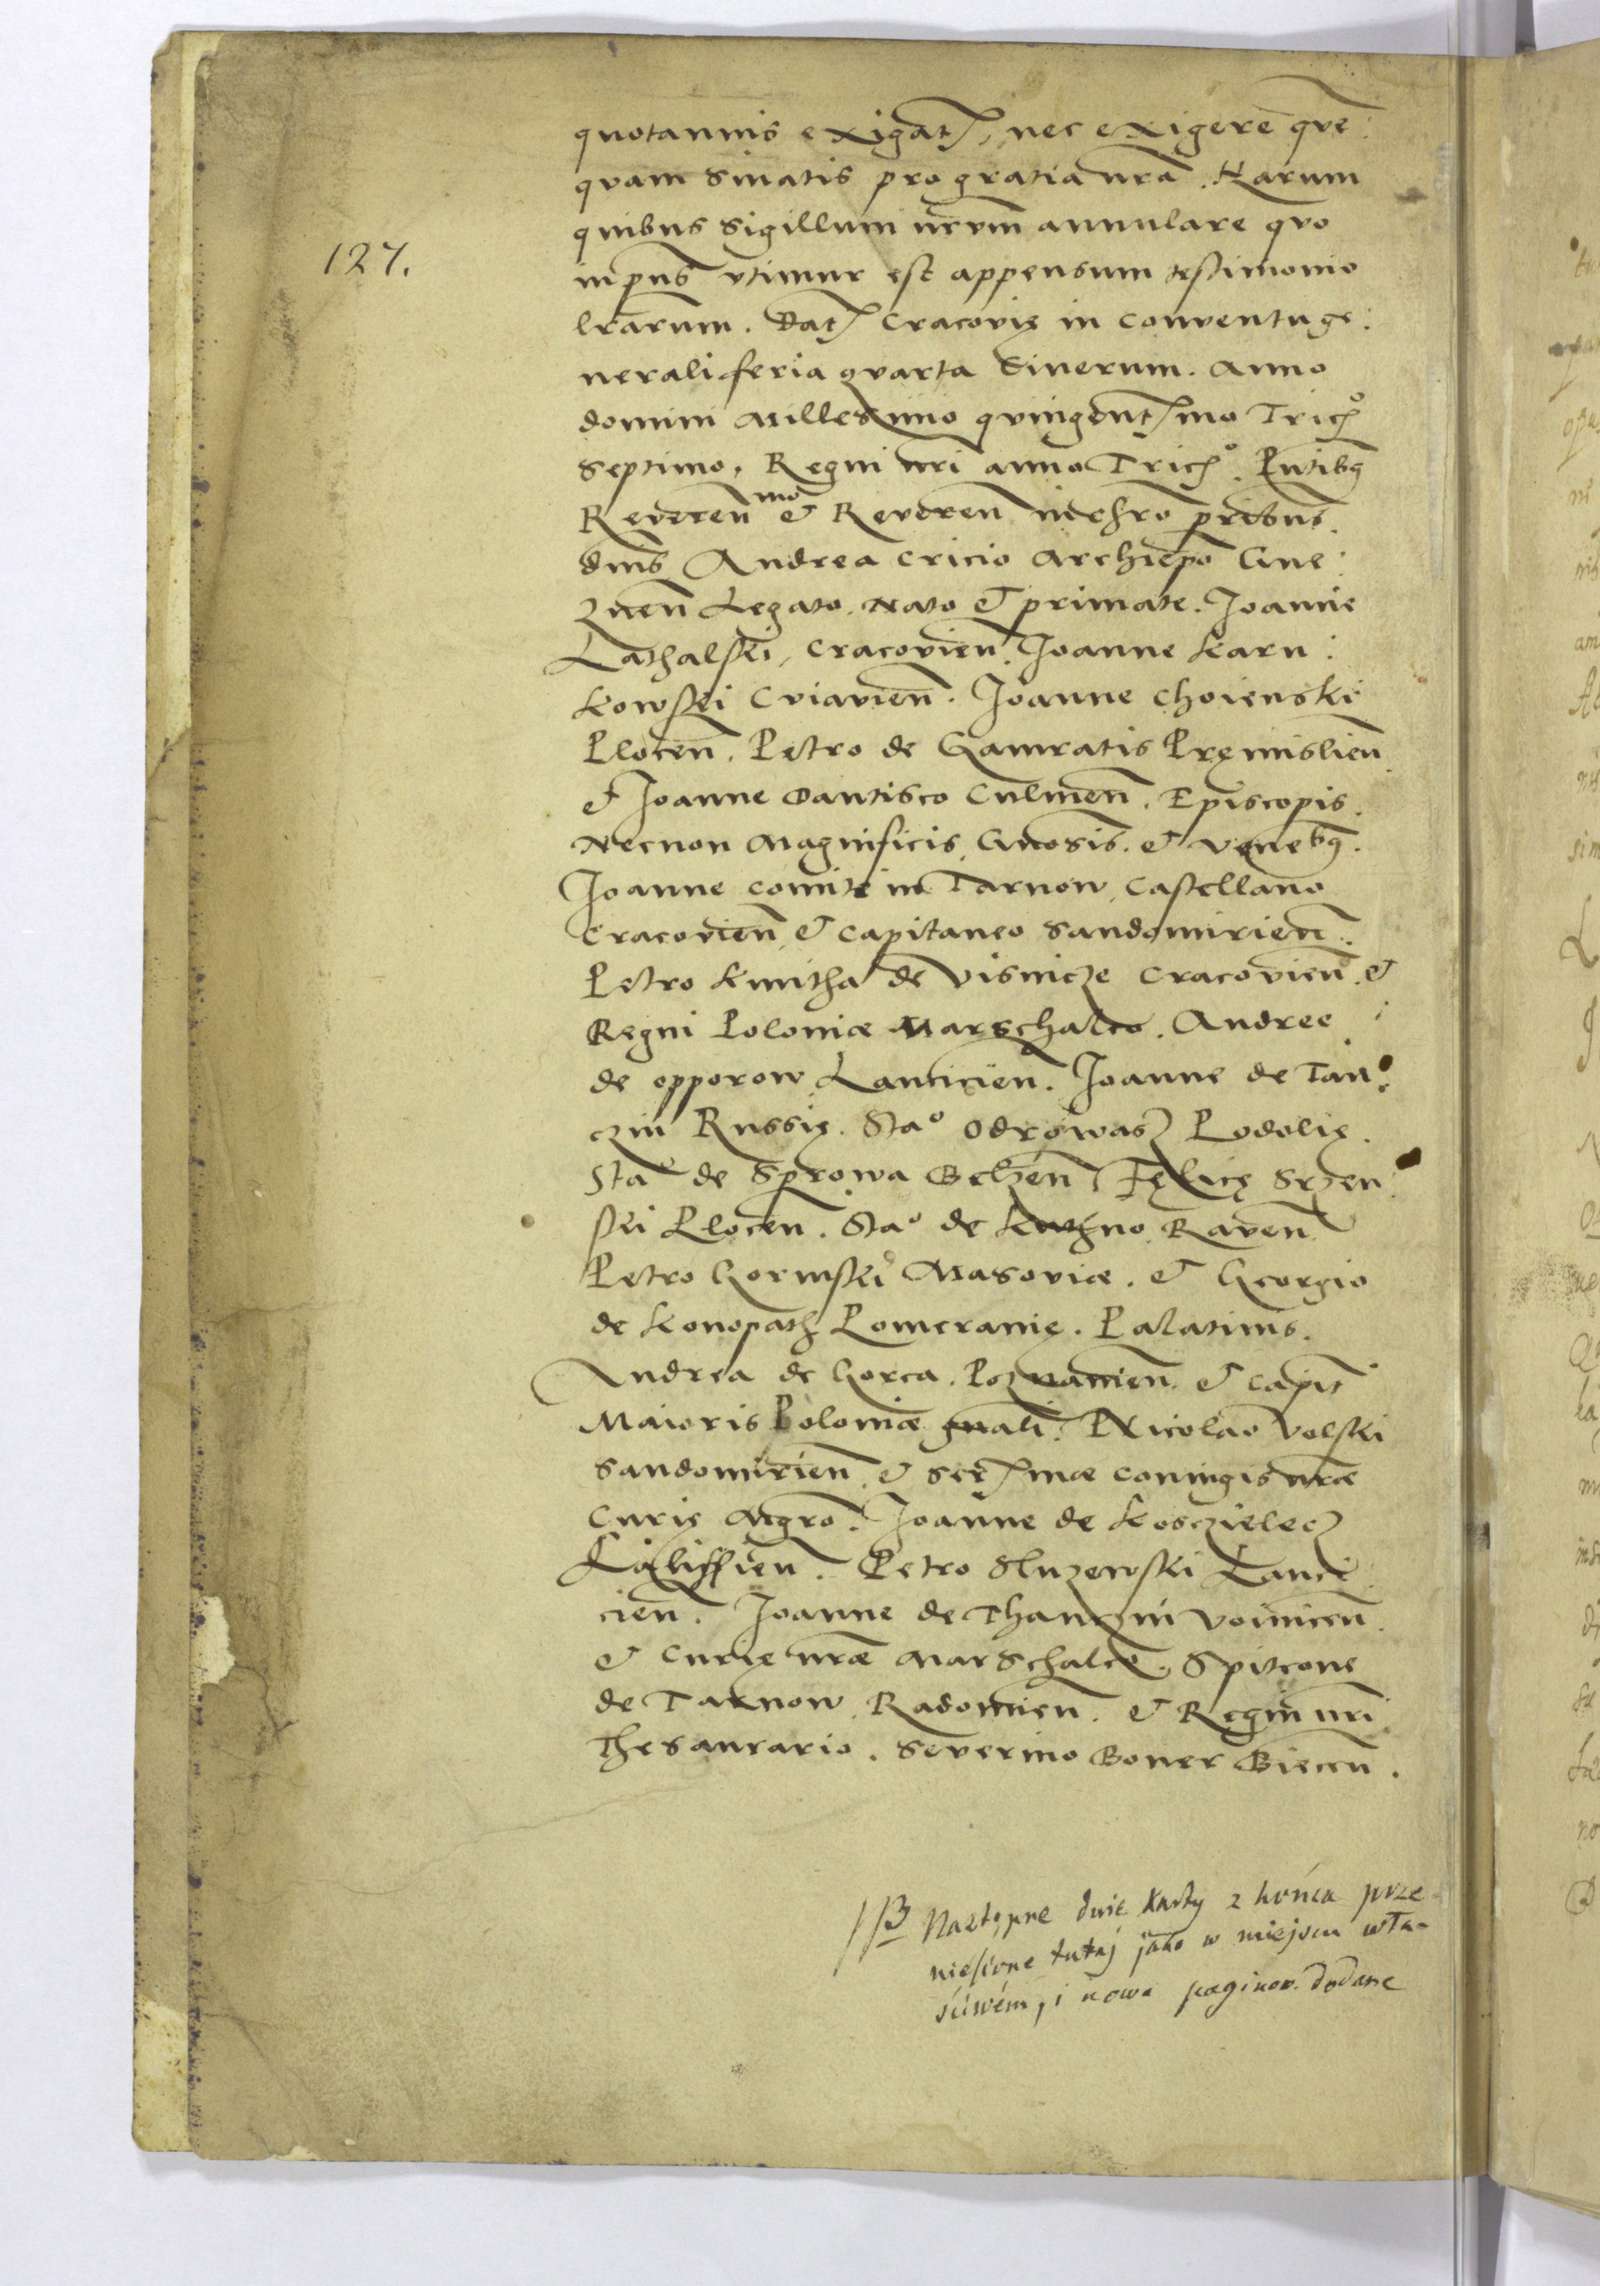 quotannis exigatʒ, nec exigere que:
quam sinatis pro gratia nra. Harum
quibus Sigillum nrvm annulare quo
127.
in pns̄ vtimur est appensum testimonio
lrarum. Datʒ Cracovię in conventu ge:
nerali feria quarta Cinerum. Anno
domini Millesimo quingentʒmo Tricʒº
Septimo, Regni nri anno Tricʒº. Pntibꝫ
Reveren mo & Reveren in chro pribus
dnis Andrea Cricio Archiepo Gne:
znen Legato Nato & primate. Joanne
Lathalski, Cracovien. Joanne Karn:
kowski Cviavien. Joanne Choienski
Plocen. Petro de Gamratis Pręmislien
& Joanne Dantisco Culmen. Episcopis.
Necnon Magnificis, Gnosis. & Venebꝫ.
Joanne comite in Tarnow, Castellano
Cracovien & Capitaneo Sandomirien.
Petro Kmitha de Visnicze Cracovien &
Regni Poloniæ Marschalco. Andree
de opporow Lancicien. Joanne de Tan:
czin Russię. Staº Odrowasz Podolię.
Staº de Sprowa Belzen Felice Srzen
ski Plocen. Staº de Kuthno Raven
Petro Gorinski Masoviæ. & Georgio
de Konopath Pomeranię. Palatinis.
Andrea de Gorca. Poznanien. & Capit
Maioris Poloniæ gnali. Nicolao Volski
Sandomirien & Serʒmæ Coniugis nræ
Curię Mgro. Joanne de Kosczielecz
Calissien. Petro Sluzewski Lanci
cien. Joanne de Thanczin Voinicen
& Curię nræ Marschalco. Spitcone
de Tarnow Radomien. & Regni nri
Thesaurario. Severino Boner Biecen.
NB Następne dwie karty z końca prze-
niesione tutaj jako w miejscu wła-
ściwém, i nowa paginow. dodane